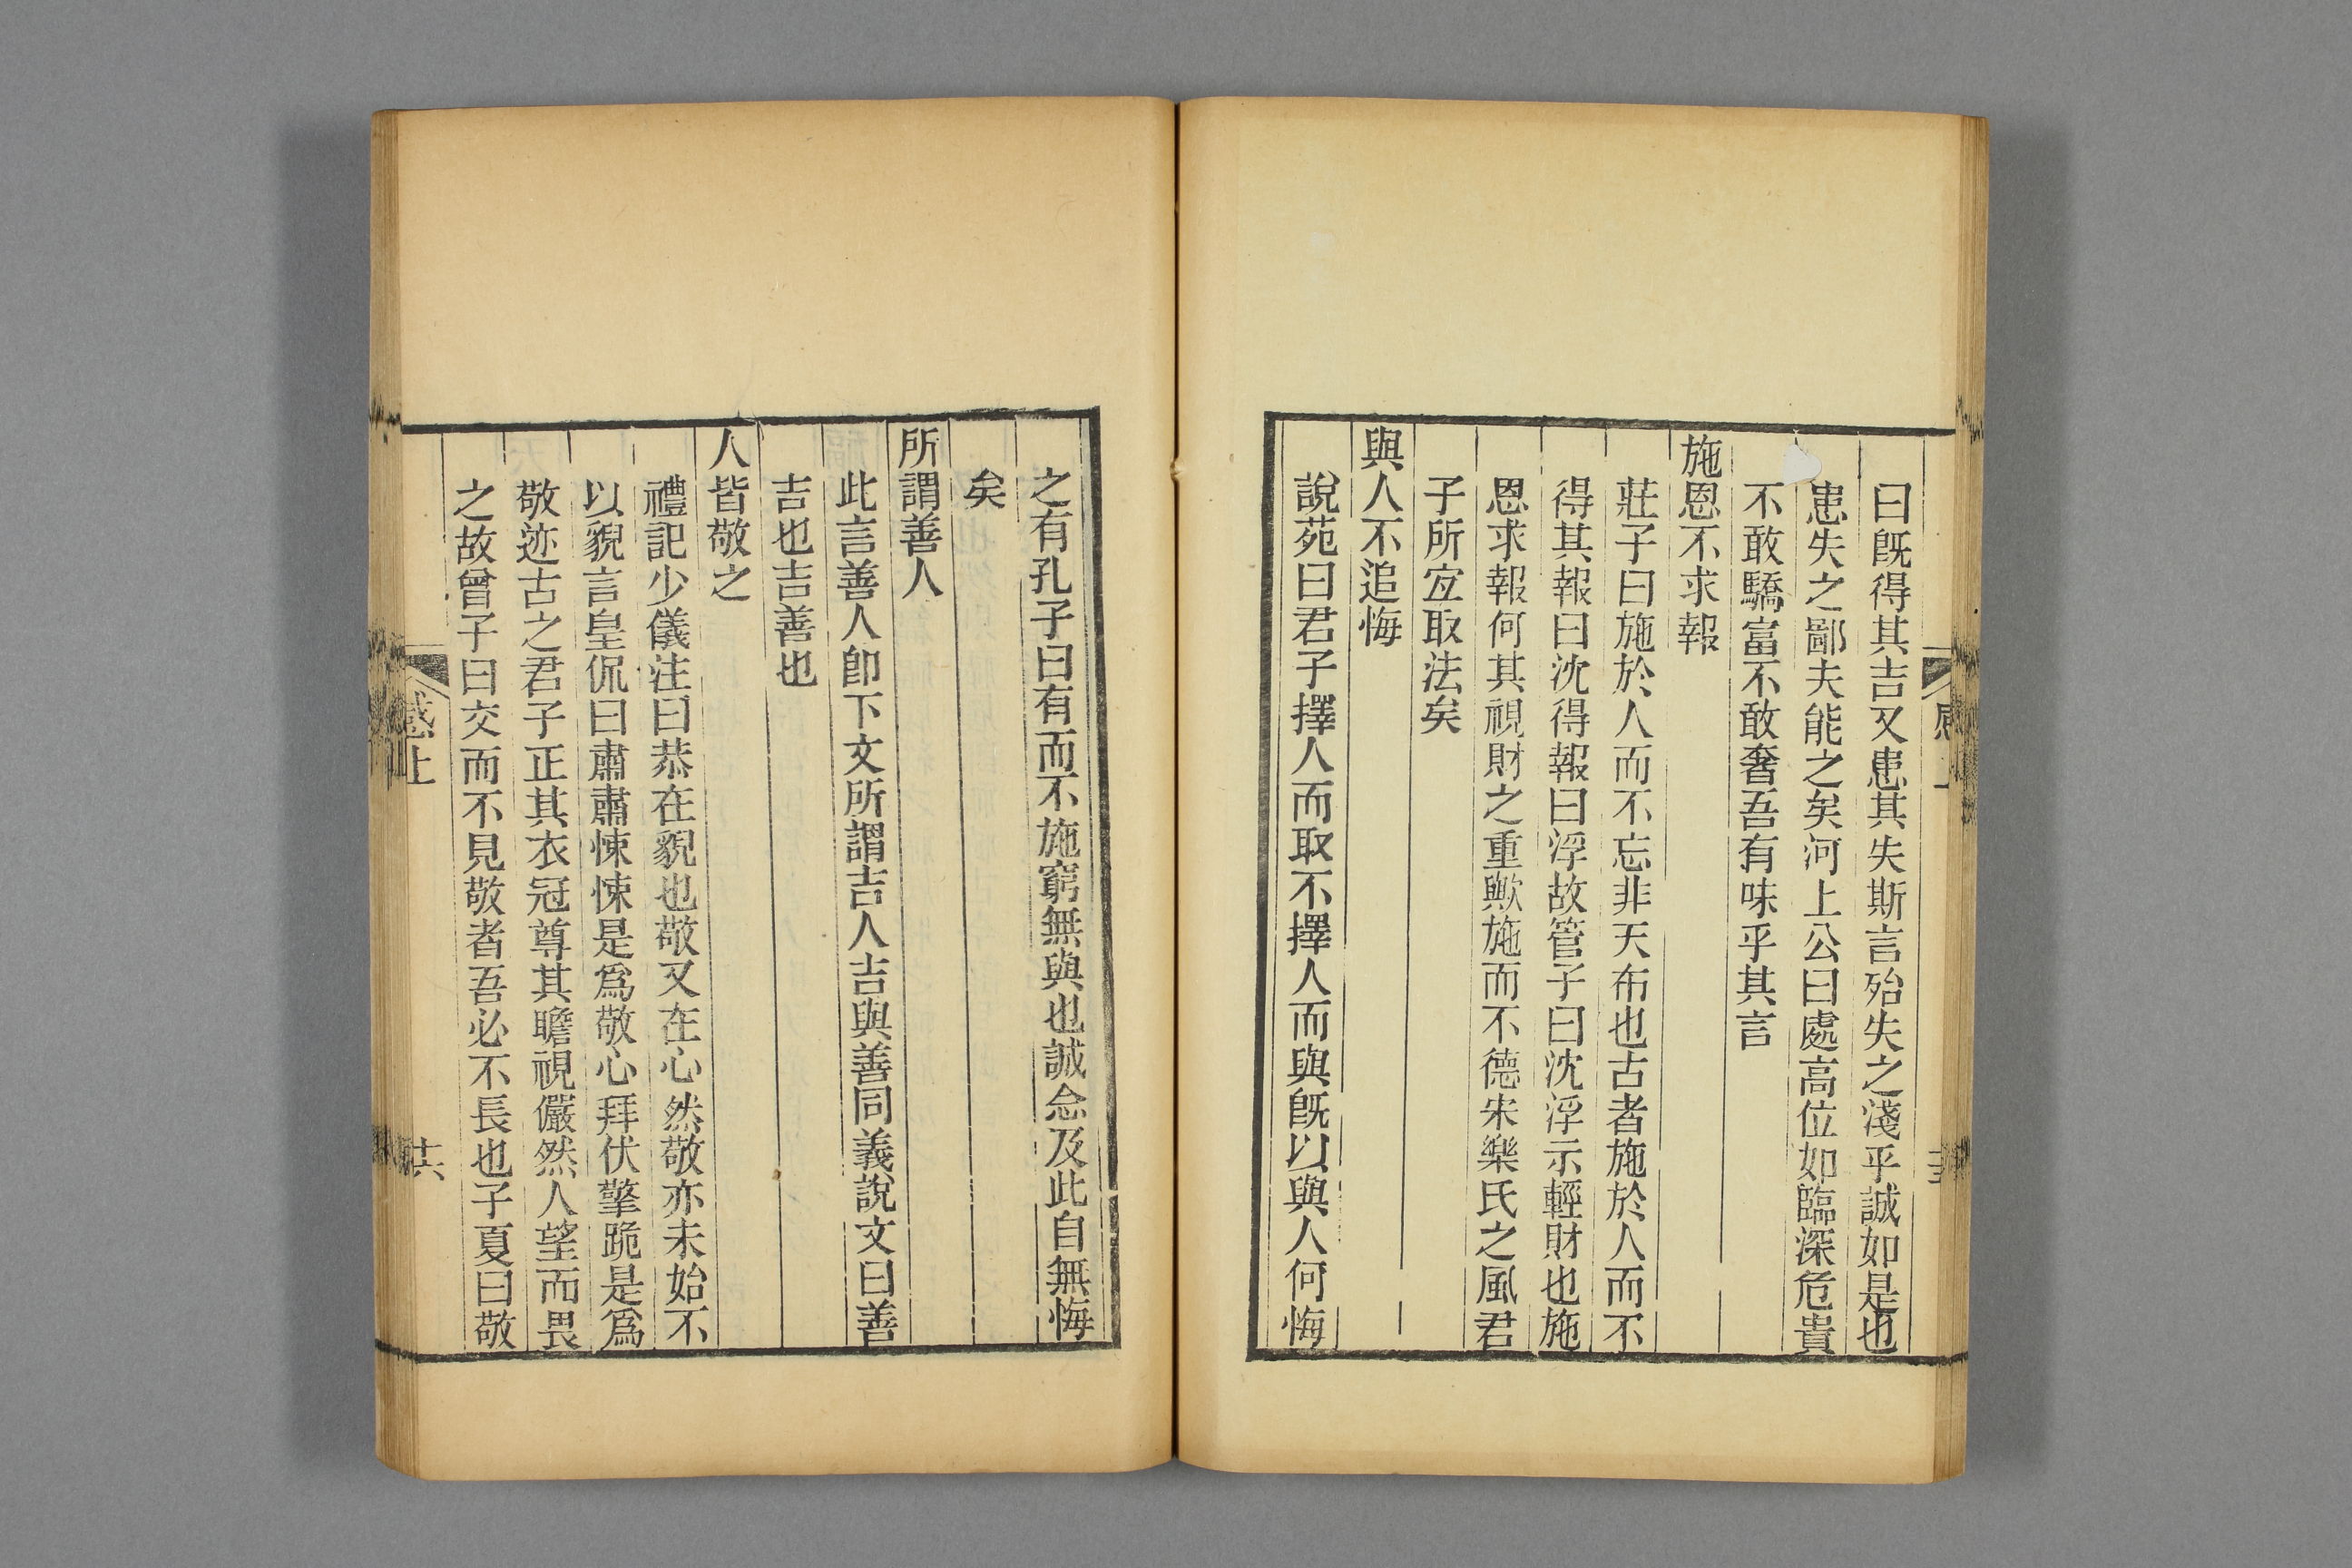 曰旣得其吉又患其失斯言殆失之淺乎誠如是也
患失之鄙夫能之矣河上公曰處高位如臨深危貴
不敢驕富不敢奢吾有味乎其言
施恩不求報
莊子曰施於人而不忘非天布也古者施於人而不
得其報曰沈得報曰浮故管子曰沈浮示輕財也施
恩求報何其視財之重歟施而不德宋樂氏之風君
子所宜取法矣
與人不追悔
說苑曰君子擇人而取不擇人而與旣以與人何悔
之有孔子曰有而不施窮無與也誠念及此自無悔
矣
所謂善人
此言善人卽下文所謂吉人吉與善同義說文曰善
吉也吉善也
人皆敬之
禮記少儀注曰恭在貌也敬又在心然敬亦未始不
以貌言皇侃曰肅肅悚悚是爲敬心拜伏擎跪是爲
敬迹古之君子正其衣冠尊其瞻視儼然人望而畏
之故曾子曰交而不見敬者吾必不長也子夏曰敬
感上
十六